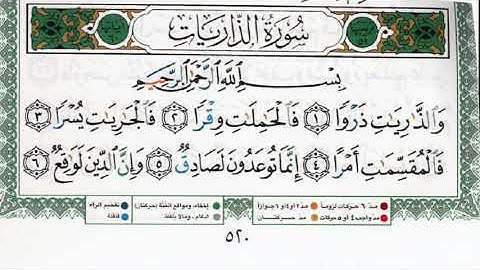 سُورَةُ الذَّارِيَاتِ
بِسْمِ اللَّهِ الرَّحْمَٰنِ الرَّحِيمِ
وَالذَّارِيَاتِ ذَرْوًا ١ فَالْحَامِلَاتِ وِقْرًا ٢ فَالْجَارِيَاتِ يُسْرًا ٣
فَالْمُقَسِّمَاتِ أَمْرًا ٤ إِنَّمَا تُوعَدُونَ لَصَادِقٌ ٥ وَإِنَّ الدِّينَ لَوَاقِعٌ ٦
مدّ ٦ حركات لزوماً مدّ ٢ أو ٤ أو ٦ جوازاً إخفاء، ومواقع الغنّة (حركتان) تفخيم الراء
مدّ واجب ٤ أو ٥ حركات مدّ حركتان إدغام، وما لا يلفظ قلقلة
٥٢٠